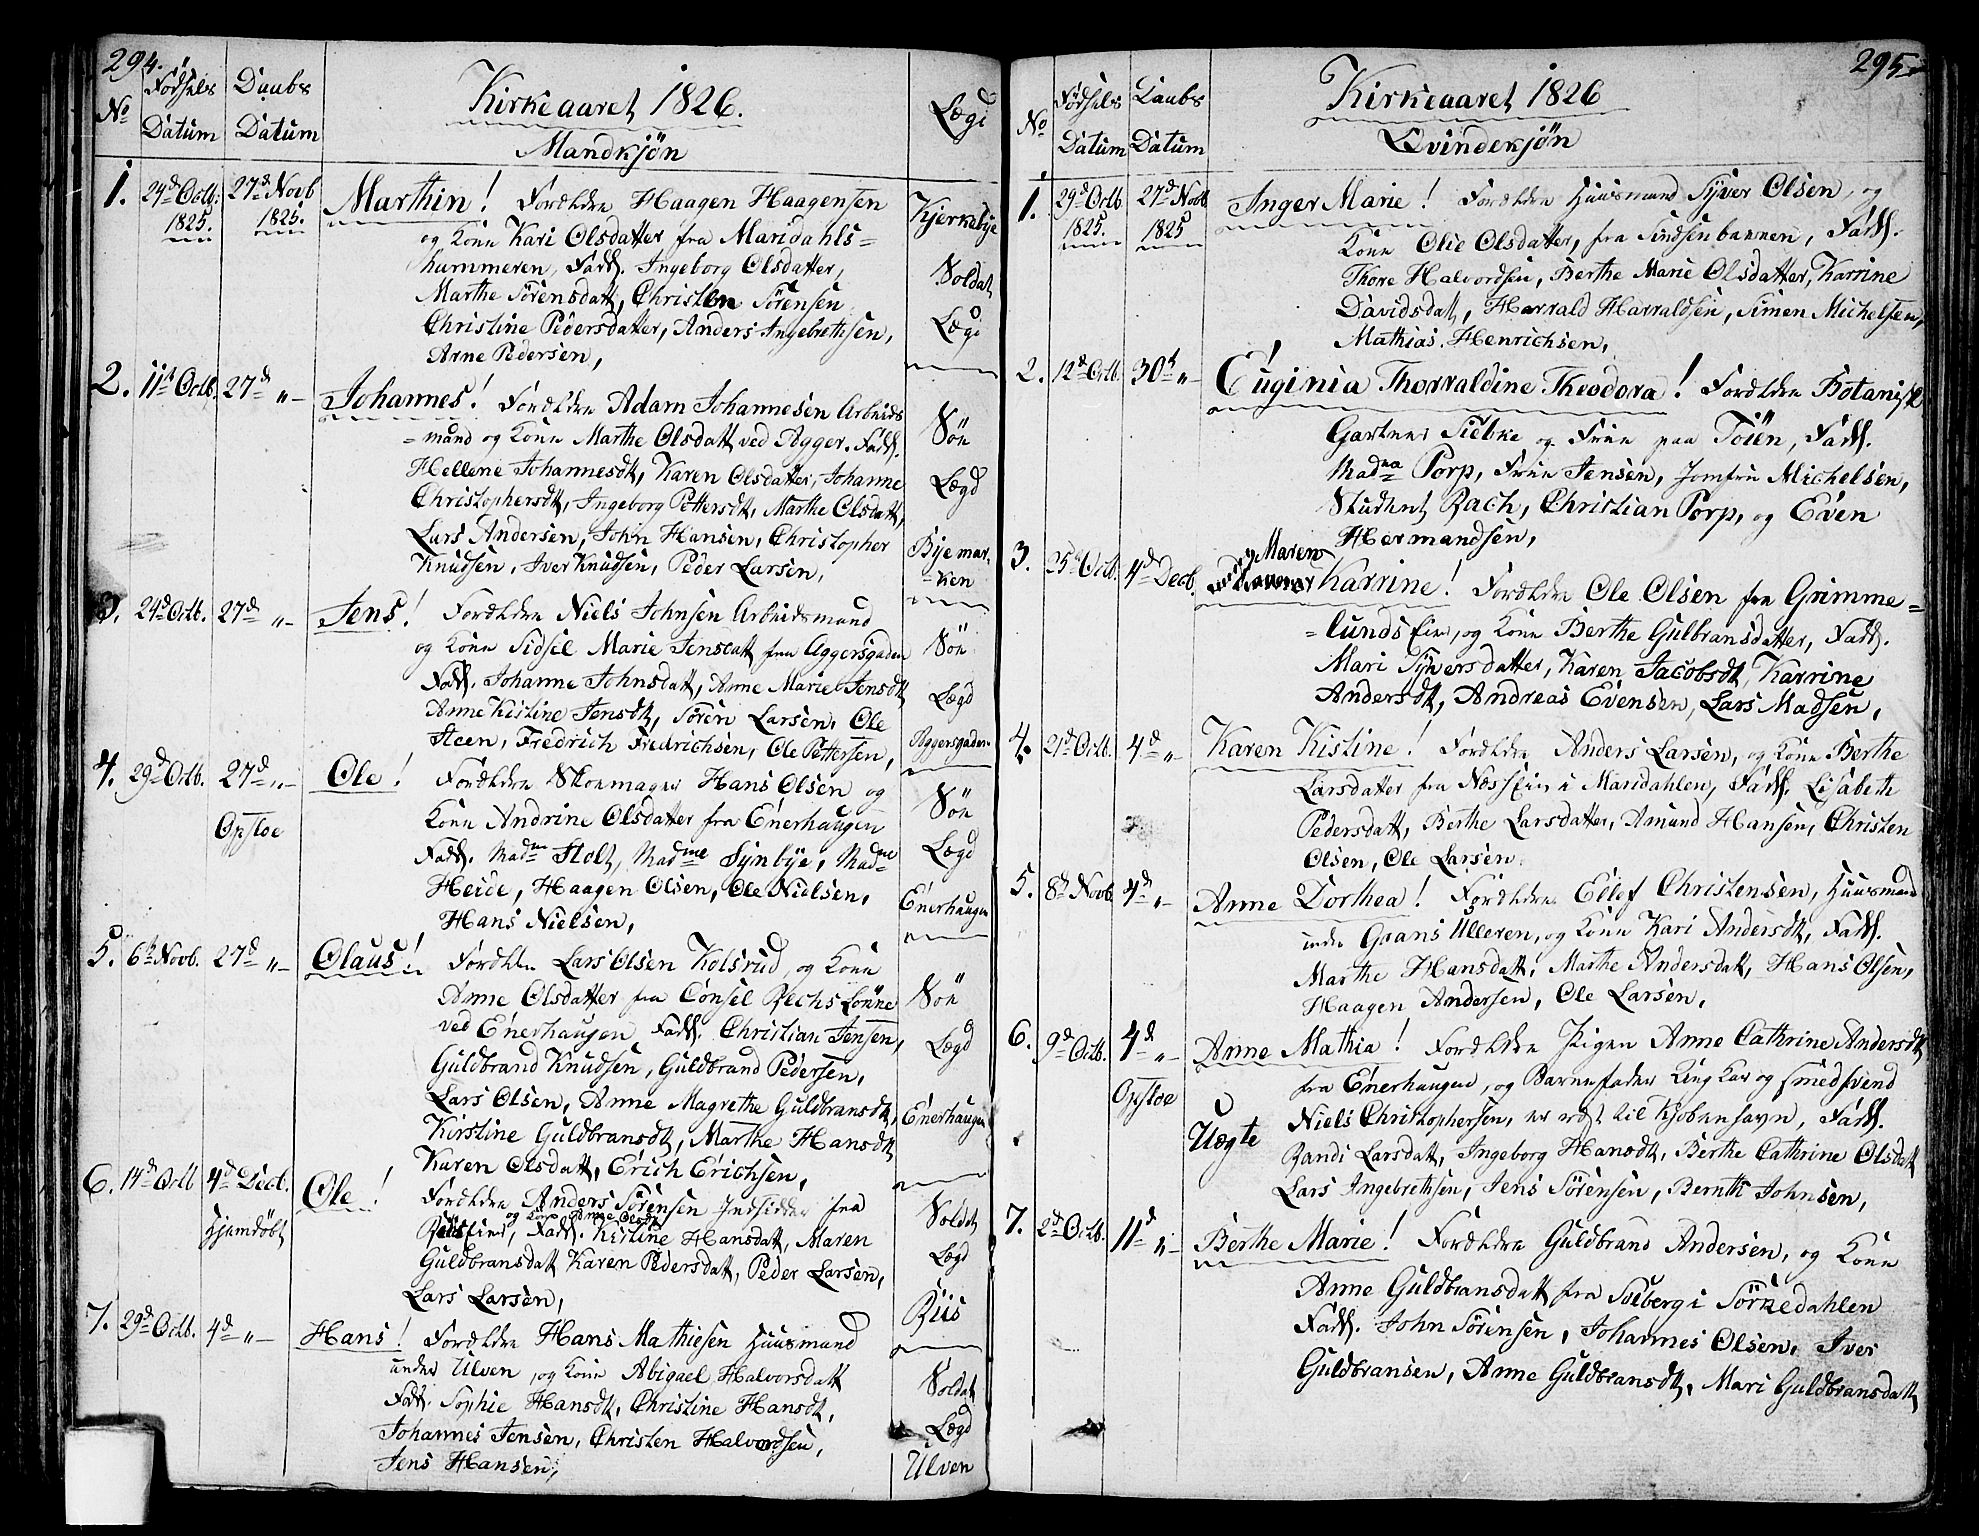 294.
No
Fødsels Datum
Daabs Datum
Kirkeaaret 1826.
Mandkjøn
Lægd
1. 24d Octb: 1825. 27d Novb 1825. Marthin! Forældre Haagen Haagensen
og Kone Kari Olsdatter fra Maridahls=
hammeren, Fadd. Ingeborg Olsdatter,
Marthe Sörensdatt, Christen Sörensen
Christine Pedersdatter, Anders Ingebrethsen,
Arne Pedersen,
Kjerkebye
Soldat
Lægd
2. 11te Octb. 27d "– Johannes! Forældre Adam Johannesen Arbeids
=mand og Kone Marthe Olsdatt ved Agger. Fadd.
Hellene Johannesdt, Karen Olsdatter, Johanne
Christophersdt, Ingeborg Pettersdt, Marthe Olsdatt,
Lars Andersen, John Hansen, Christopher
Knudsen, Iver Knudsen, Peder Larsen,
Søn
Lægd
Byemar=
=ken
3. 24d Octb. 27d "– Jens! Forældre Niels Johnsen Arbeidsmand
og Kone Sidsel Marie Jensdatt fra Aggersgaden
Fadd. Johanne Johnsdatt, Anne Marie Jensdt,
Anne Kistine Jensdt, Sören Larsen, Ole
Steen, Fredrich Fredrichsen, Ole Pettersen,
Søn
Lægd
Aggersgaden
4. 29d Octb. 27d "– Opstoe Ole! Forældre Skomager Hans Olsen og
Kone Andrine Olsdatter fra Enerhaugen
Fadd. Madm Holt, Madme Synbye, Madme
Heide, Haagen Olsen, Ole Nielsen,
Hans Nielsen,
Søn
Lægd
Enerhaugen
5. 6te Novb. 27d "– Olaus! Forældre Lars Olsen Kolsrud, og Kone
Anne Olsdatter fra Consel Rechs Lønne
ved Enerhaugen Fadd. Christian Jensen,
Guldbrand Knudsen, Guldbrand Pedersen,
Lars Olsen, Anne Magrethe Guldbransdt,
Kirstine Guldbransdt, Marthe Hansdt
Karen Olsdatt, Erich Erichsen,
Søn
Lægd
Enerhaugen
6. 14d Octb 4d Decb. Hjemdøbt Ole! Forældre Anders Sörensen Indsidder fra
og Kone Anne Olsdt
Riis Eier, Fadd. Kistine Hansdatt, Maren
Guldbransdatt Karen Pedersdatt, Peder Larsen,
Lars Larsen,
Soldat
Lægd
Riis
7. 29d Octb. 4d "– Hans! Forældre Hans Mathiesen Huusmand
under Ulven, og Kone Abigael Halvorsdatt
Fadd. Sophie Hansdt, Christine Hansdt,
Johannes Jensen, Christen Halvordsen,
Jens Hansen,
Soldat
Lægd
Ulven
295.
No
Fødsels Datum
Daabs Datum
Kirkeaaret 1826
Qvindekjøn
1. 29d Octb 1825. 27d Novb 1825 Inger Marie! Forældre Huusmand Syver Olsen, og
Kone Olie Olsdatter, fra Sindsenbannen, Fadd.
Thore Halvordsen, Berthe Marie Olsdatter, Karrine
Davidsdat, Harrald Harraldsen, Simen Michelsen,
Mathias Henrichsen,
2. 12d Octb. 30te "– Euginia Thorvaldine Theodora! Forældre Botanisk
Gartner Siebke og Frue paa Töien, Fadd.
Madma Porp, Frue Jensen, Jomfru Michelsen,
Student Rach, Christian Porp, og Even
Hermandsen,
3. 25d Octb. 4d Decb. Maren
Karrine! Forældre Ole Olsen fra Grimme=
=lunds Eie, og Kone Berthe Gulbransdatter, Fadd.
Mari Syversdatter, Karen Jacobsdt, Karrine
Andersdt, Andreas Evensen, Lars Madsen,
4. 21d Octb. 4d "– Karen Kistine! Forældre Anders Larsen, og Kone Berthe
Larsdatter fra Næss Eie i Maridahlen, Fadd. Lisabeth
Pedersdatt, Berthe Larsdatter, Amund Hansen, Christen
Olsen, Ole Larsen.
5. 8de Novb. 4d "– Anne Dorthea! Forældre Ellef Christensen, Huusmand
under Graans Ulleren, og Kone Kari Andersdt, Fadd.
Marthe Hansdatt, Marthe Andersdatt, Hans Olsen,
Haagen Andersen, Ole Larsen,
6. 9d Octb. 4d "– Opstoe Anne Mathia! Forældre Pigen Anne Cathrine Andersdt
fra Enerhaugen, og Barnefader Ung Kar og Smedsvend
Niels Christophersen, er rest til Kjøbenhavn, Fadd.
Uægte
Randi Larsdatt, Ingeborg Hansdt, Berthe Cathrine Olsdatt
Lars Ingebrethsen, Jens Sörensen, Bernth Johnsen,
7. 2d Octb. 11d "– Berthe Marie! Forældre Guldbrand Andersen, og Kone
Anne Guldbransdatt fra Solberg i Sörkedahlen
Fadd. John Sörensen, Johannes Olsen, Iver
Guldbransen, Anne Guldbransdt, Mari Guldbransdatt